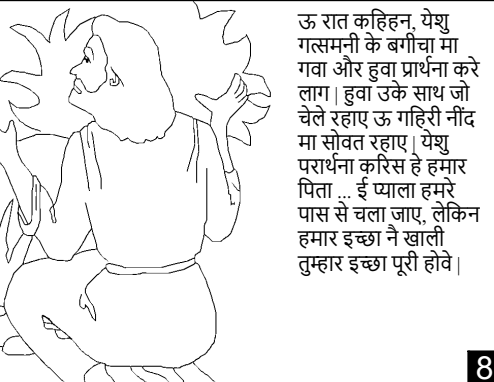 ऊ रात कहिहन, येशु
गत्समनी के बगीचा मा
गवा और हुवा प्रार्थना करे
लाग | हुवा उके साथ जो
चेले रहाए ऊ गहिरी नींद
मा सोवत रहाए | येशु
परार्थना करिस हे हमार
पिता ... ई प्याला हमरे
पास से चला जाए, लेकिन
हमार इच्छा नै खाली
तुम्हार इच्छा पूरी होवे |
8